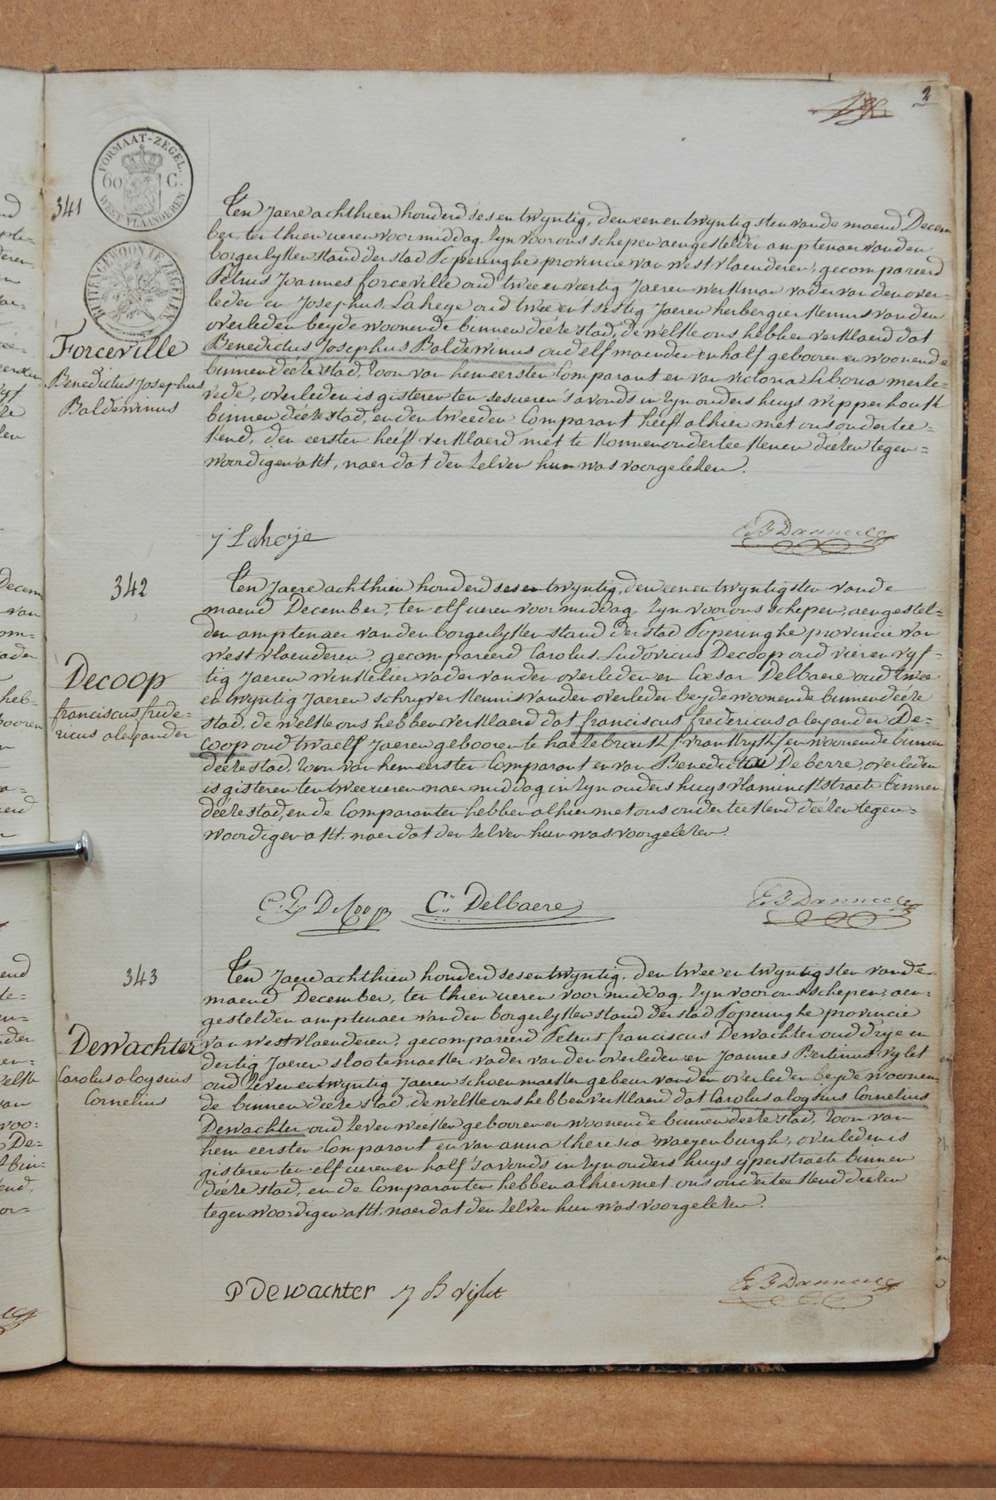 2
FORMAAT-ZEGEL
60 C.
WEST VLAANDEREN
BUITENGEWOONTE ZEGELEN
341
Forceville
Benedictus Josephus
Baldewinus
Ten Jaere achthien honderd sesentwyntig, den een en twyntigsten van de maend Decem
ber, ten thien ueren voormiddag, Zyn voor ons schepen aengestelden amptenaer van den
borgerlyken stand der stad Poperinghe provincie van westvlaenderen, gecompareerd
Petrus Joannes forceville oud twee en veertig Jaeren werkman vader van den over-
leden en Josephus Laheye oud twee en t'sestig Jaeren herbergier kennis van den
overleden beyde woonende binnen dézte stad, de welke ons hebben verklaerd dat
Benedictus Josephus Baldewinus oud elf maenden en half gebooren en woonende
binnen dézte stad, Zoon van hem eersten Comparant en van victoria Liboria merle-
vede, overleden is gisteren ten ses ueren s'avonds in Zyn ouders huys wipperhoek
binnen dézte stad, en den tweeden Comparant heeft alhier met ons onderteé-
kend, den eersten heeft verklaerd niet te konnen onderteekenen dézen tegen-
woordigen akt, naer dat den zelven hun was voorgelezen.
J Laheije
342
Decoop
franciscus frede-
ricus alexander
Ten Jaere achthien honderd sesentwyntig, den een en twyntigsten van de
maend December, ten elf ueren voormiddag, Zyn voor ons schepen, aengestel-
den amptenaer van den borgerlyken stand der stad Poperinghe provincie van
westvlaenderen, gecompareerd Carolus Ludovicus Decoop oud vier en vyf-
tig Jaeren winkelier vader van den overleden en Cesar Delbaere oud twee
en twyntig Jaeren schryver kennis van den overleden beyde woonende binnen dézte
stad, de welke ons hebben verklaerd dat franciscus fredericus alexander De-
coop oud twaelf Jaeren gebooren te haezebrouck (vrankryk) en woonende binnen
dézte stad, Zoon van hem eersten Comparant en van Benedicta Deberre, overleden
is gisteren ten twee ueren naermiddag in Zyn ouders huys vlaminckstraete binnen
dézte stad, en de Comparanten hebben alhier met ons onderteekend dézen tegen-
woordigen akt, naer dat den zelven hun was voorgelezen.
C. L. DeCoop C.n Delbaere
343
Dewachter
Carolus aloysius
Cornelius
Ten Jaere achthien honderd sesentwyntig, den twee en twyntigsten van de
maend December, ten thien ueren voormiddag, Zyn voor ons schepen, aen-
gestelden amptenaer van den borgerlyken stand der stad Poperinghe provincie
van westvlaenderen, gecompareerd Petrus franciscus Dewachter oud drye en
dertig Jaeren slootemaeker vader van den overleden en Joannes Bertinus vylet
oud zeven en twyntig Jaeren schoenmaeker gebeur van den overleden beyde woonen
de binnen dézte stad, de welke ons hebben verklaerd dat Carolus aloysius Cornelius
Dewachter oud zeven weeken gebooren en woonende binnen dézte stad, Zoon van
hem eersten Comparant en van anna theresia waeyenburgh, overleden is
gisteren ten elf ueren en half s'avonds in Zyn ouders huys yperstraete binnen
dézte stad, en de Comparanten hebben alhier met ons onderteekend dézen
tegenwoordigen akt, naer dat den zelven hun was voorgelezen.
P Dewachter J B Vijlet